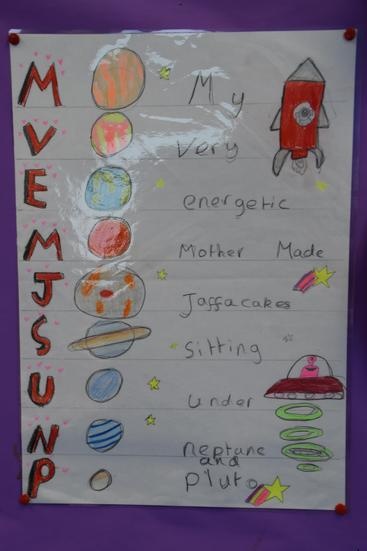 M My
V Very
E energetic
M Mother Made
J Jaffacakes
S Sitting
U Under
N Neptune
and
P pluto